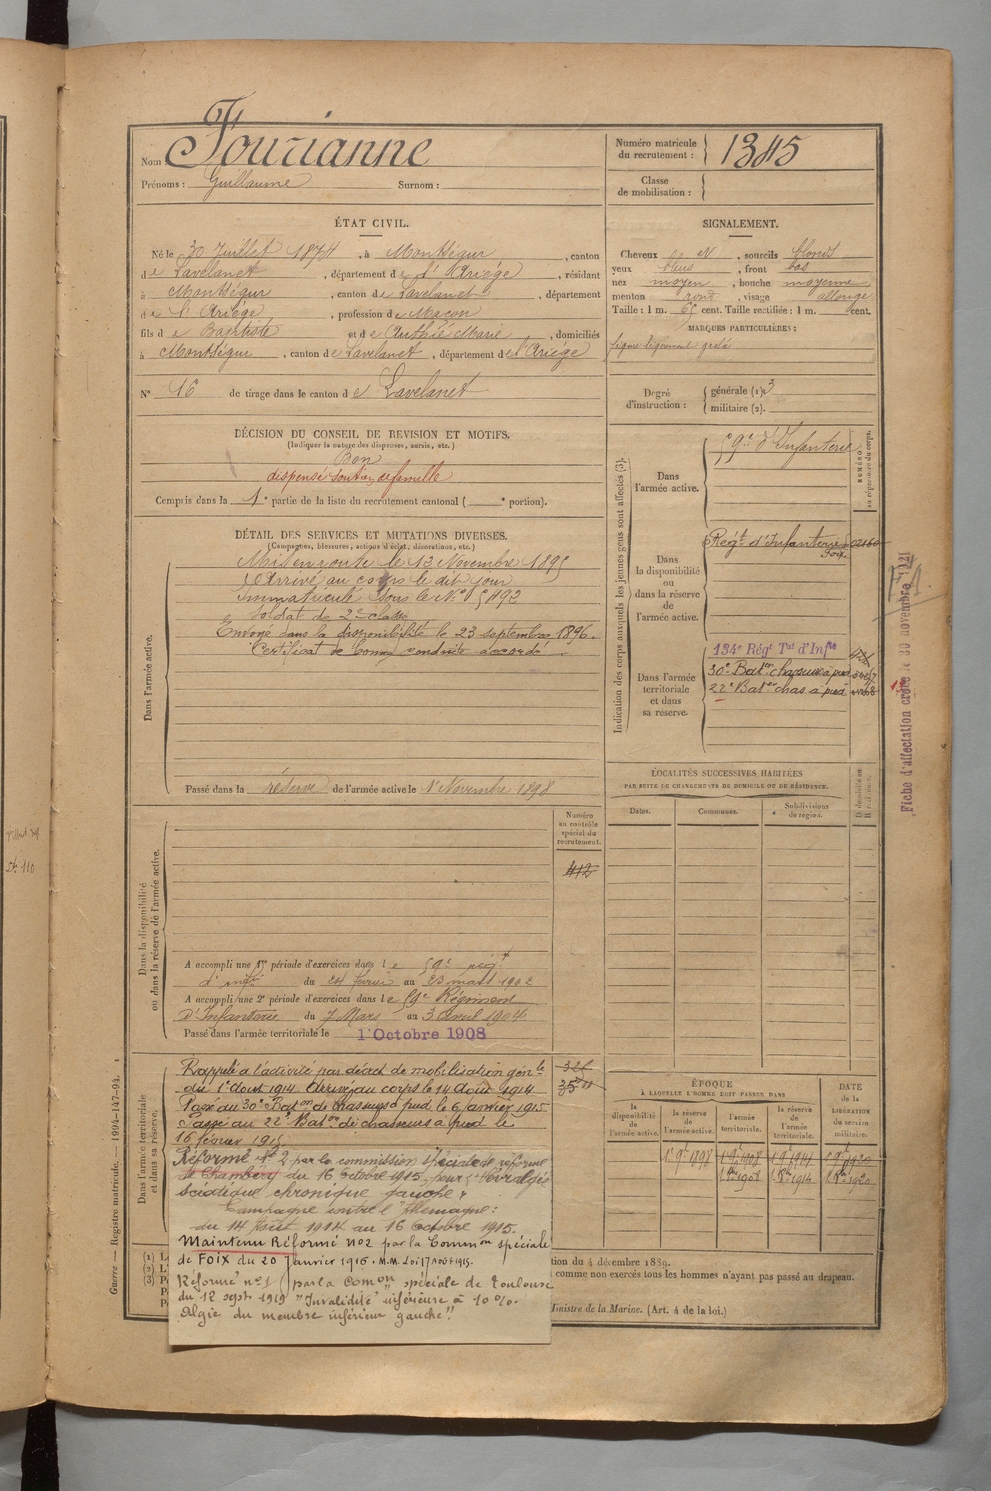 Nom Fourianne
Prénoms : Guillaume Surnom :
Numéro matricule du recrutement : 1345
Classe de mobilisation :
ÉTAT CIVIL.
Né le 30 Juillet 1874, à Montségur, canton
de Lavelanet, département de l'Ariège, résidant
à Montségur, canton de Lavelanet, département
de l'Ariège, profession de Maçon
fils de Baptiste et de Authié Marie, domiciliés
à Montségur, canton de Lavelanet, département de l'Ariège
N° 16 de tirage dans le canton de Lavelanet
SIGNALEMENT.
Cheveux, sourcils blonds
yeux bleus, front bas
nez moyen, bouche moyenne
menton rond, visage allongé
Taille : 1 m. 65 cent. Taille rectifiée : 1 m. cent.
MARQUES PARTICULIÈRES :
figure légèrement grelé
Degré d'instruction : générale (1) 3
militaire (2).
DÉCISION DU CONSEIL DE REVISION ET MOTIFS.
(Indiquer la nature des dispenses, sursis, etc.)
Bon
dispensé soutien de famille
Compris dans la 1e partie de la liste du recrutement cantonal ( e portion).
DÉTAIL DES SERVICES ET MUTATIONS DIVERSES.
(Campagnes, blessures, actions d'éclat, décorations, etc.)
Dans l'armée active.
Mis en route le 13 Novembre 1895
Arrivé au corps le dit jour
Immatriculé sous le N° 5492
Soldat de 2e classe
Envoyé dans la disponibilité le 23 septembre 1896.
Certificat de bonne conduite accordé
Passé dans la réserve de l'armée active le 1er Novembre 1898
Indication des corps auxquels les jeunes gens sont affectés (3).
NUMÉRO au répertoire du corps.
Dans l'armée active.
59e d'Infanterie
Dans la disponibilité ou dans la réserve de l'armée active.
Régt d'Infanterie 02160
Foix
Dans l'armée territoriale et dans sa réserve.
134e Régt Tal d'Infie
30e Baton chasseurs à pied
22e Baton chas à pied
Fiche d'affectation créée le 30 novembre 121
LOCALITÉS SUCCESSIVES HABITÉES
PAR SUITE DE CHANGEMENTS DE DOMICILE OU DE RÉSIDENCE.
Dates. Communes. Subdivisions de région.
Dans la disponibilité ou dans la réserve de l'armée active.
Numéro au contrôle spécial du recrutement.
412
A accompli une 1re période d'exercices dans le 59e régt
d'infie du 24 février au 23 mars 1902
A accompli une 2e période d'exercices dans le 59e Régiment
D'Infanterie du 7 Mars au 3 avril 1904
Passé dans l'armée territoriale le 1er Octobre 1908
Dans l'armée territoriale et dans sa réserve.
Rappelé à l'activité par décret de mobilisation génle
du 1er Aout 1914. Arrivé au corps le 14 Août 1914
Passé au 30e Baton de chasseurs à pied le 6 janvier 1915
Passé au 22e Baton de chasseurs à pied le
16 février 1915
Réformé N° 2 par la commission spéciale de réforme
de Chambéry du 16 octobre 1915, pour : Névralgie
sciatique chronique gauche
Campagne contre l'Allemagne :
du 14 Aout 1914 au 16 octobre 1915.
Maintenu Réformé n°2 par la Common spéciale
de Foix du 20 Janvier 1916. M.M. Loi 17 août 1915.
Réformé n°1 par la Comon spéciale de Toulouse
du 12 sept 1919 "Invalidité" inférieure à 10 %.
Algie du membre inférieur gauche".
ÉPOQUE
À LAQUELLE L'HOMME DOIT PASSER DANS
la disponibilité de l'armée active. la réserve de l'armée active. l'armée territoriale. la réserve de l'armée territoriale.
DATE de la LIBÉRATION du service militaire.
1er 9e 1898 1er 9e 1908 1er 9e 1914
tion du 4 décembre 1889.
comme non exercés tous les hommes n'ayant pas passé au drapeau.
Ministre de la Marine. (Art. 4 de la loi.)
Guerre — Registre matricule. — 1994-147-94.